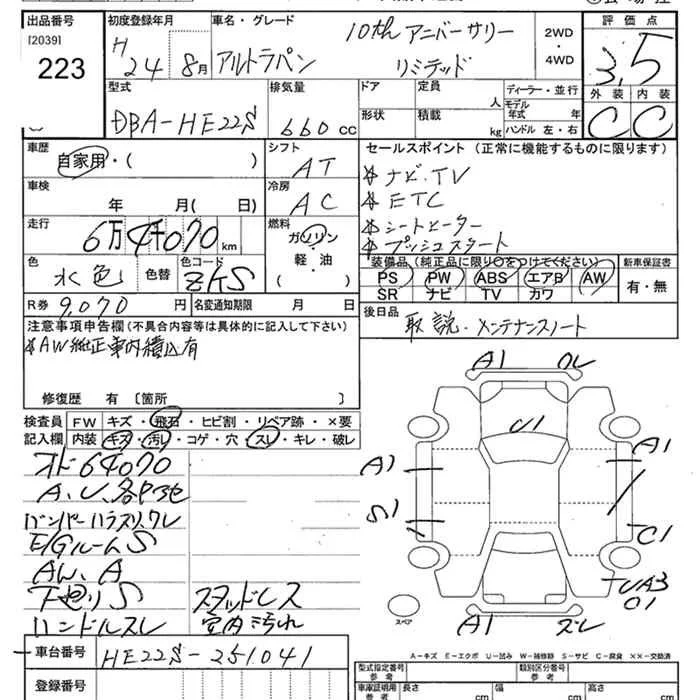 出品番号
[2039]
223
初度登録年月
H 24 8月
車名・グレード
アルトラパン 10th アニバーサリー
リミテッド
2WD
・
4WD
評価点
3.5
外装 内装
C C
型式
DBA-HE22S
排気量
660 cc
ドア
定員
人
形状
積載
kg
ディーラー・並行
モデル年式 年
ハンドル 左・右
車歴
自家用・( )
シフト
AT
セールスポイント (正常に機能するものに限ります)
ナビ.TV
ETC
シートヒーター
プッシュスタート
車検
年 月( 日)
冷房
AC
走行
6万4千070 km
燃料
ガソリン
軽・油
( )
色
水色
色替
色コード
ZKS
装備品 (純正品に限り○をつけてください)
PS PW ABS エアB AW
SR ナビ TV カワ
新車保証書
有・無
R券 9,070 円
名変通知期限 月 日
後日品
取説.メンテナンスノート
注意事項申告欄 (不具合内容等は具体的に記入して下さい)
AW純正車内積込有
修復歴 有 〔箇所
検査員
記入欄
FW キズ・飛石・ヒビ割・リペア跡・×要
内装 キズ・汚レ・コゲ・穴・スレ・キレ・破レ
オド64070
A、U、各所
EGルームS
AW、A
下廻りS スタッドレス
ハンドルスレ 室内汚れ
A1
U1
A1 A1
S1
C1
UA3
C1
A1
スペア
A-キズ E-エクボ U-凹み W-補修跡 S-サビ C-腐食 ××-交換済
車台番号 HE22S-251041
登録番号
型式指定番号
参考
類別区分番号
参考
車庫証明用
参考
長さ cm
幅 cm
高さ cm